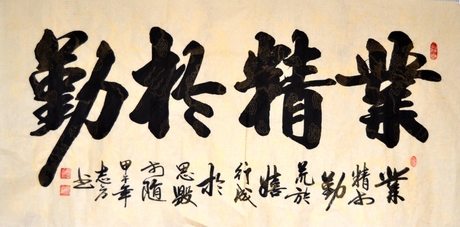 業精於勤
業
精於
勤
荒於
嬉
行成
於
思毀
於随
甲午年
书